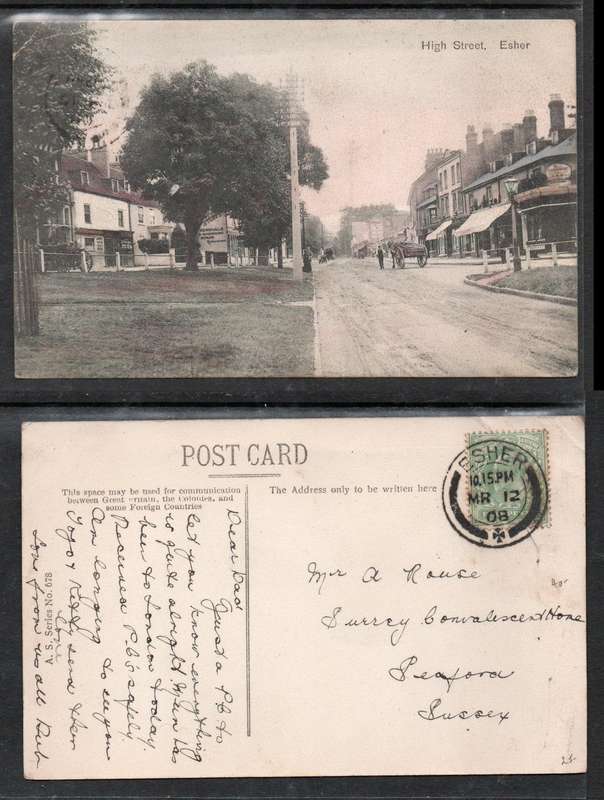 High Street, Esher
POST CARD
This space may be used for communication
between Great Britain, the Colonies, and
some Foreign Countries
The Address only to be written here
ESHER
10.15.PM
MR 12
08
Dear Dad
Just a P.C to
let you know everything
is quite alright. Men has
been to London today
Received P.C's safely.
Am longing to see you
Togo & Kitty send their
love
Love from us all Rub
A. S. Series No. 678
Mr A Rouse
Surrey Convalescent Home
Seaford
Sussex
25-